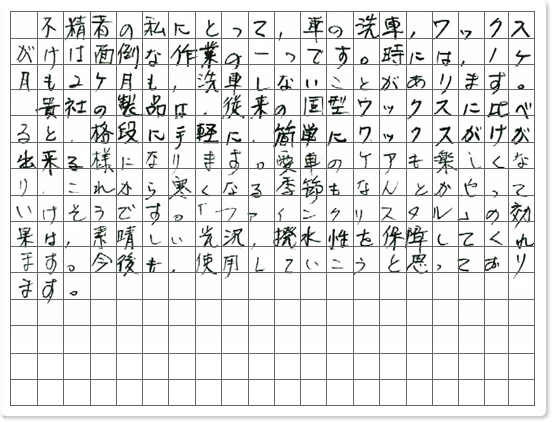 不精者の私にとって，車の洗車，ワックス
がけは面倒な作業の一つです。時には，1ヶ
月も2ヶ月も，洗車しないことがあります。
貴社の製品は，従来の固型ワックスに比べ
ると，格段に手軽に，簡単にワックスがけが
出来る様になります。愛車のケアも楽しくな
り，これから寒くなる季節もなんとかやって
いけそうです。「ファインクリスタル」の効
果は，素晴しい光沢，撥水性を保障してくれ
ます。今後も，使用していこうと思っており
ます。